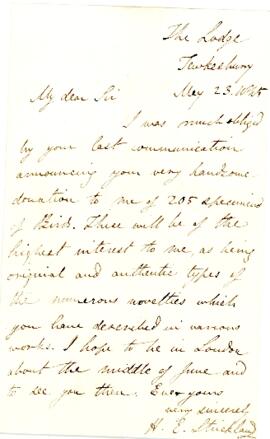 The Lodge
Tewkesbury
May 23. 1845
My dear Sir
I was much obliged
by your last communication
announcing your very handsome
donation to me of 205 specimens
of Birds. These will be of the
highest interest to me, as being
original and authentic types of
the numerous novelties which
you have described in various
works. I hope to be in London
about the middle of June and
to see you then. Ever yours
very sincerely
H. E. Strickland